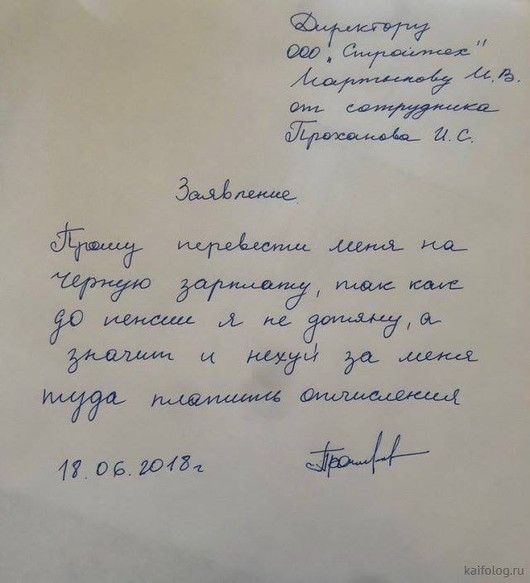 Директору
ООО „Стройтех"
Мартынову И.В.
от сотрудника
Проханова И.С.
Заявление
Прошу перевести меня на
черную зарплату, так как
до пенсии я не дотяну, а
значит и нехуй за меня
туда платить отчисления
18.06.2018г
kaifolog.ru